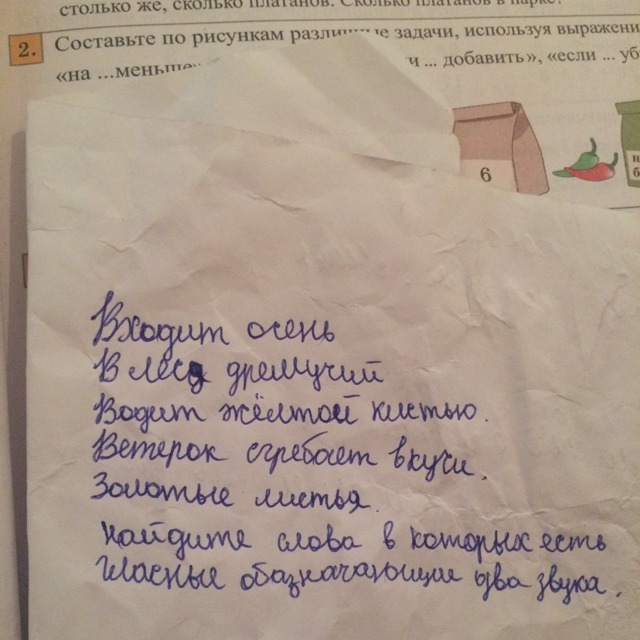 столько же, сколько платанов. Сколько платанов в парке?
2. Составьте по рисункам различные задачи, используя
«на ...меньше» ... добавить», «если ...
6
Входит осень
В лес дремучий
Водит жёлтой кистью.
Ветерок сгребает в кучи.
Золотые листья.
найдите слова в которых есть
гласные обазначающие два звука.